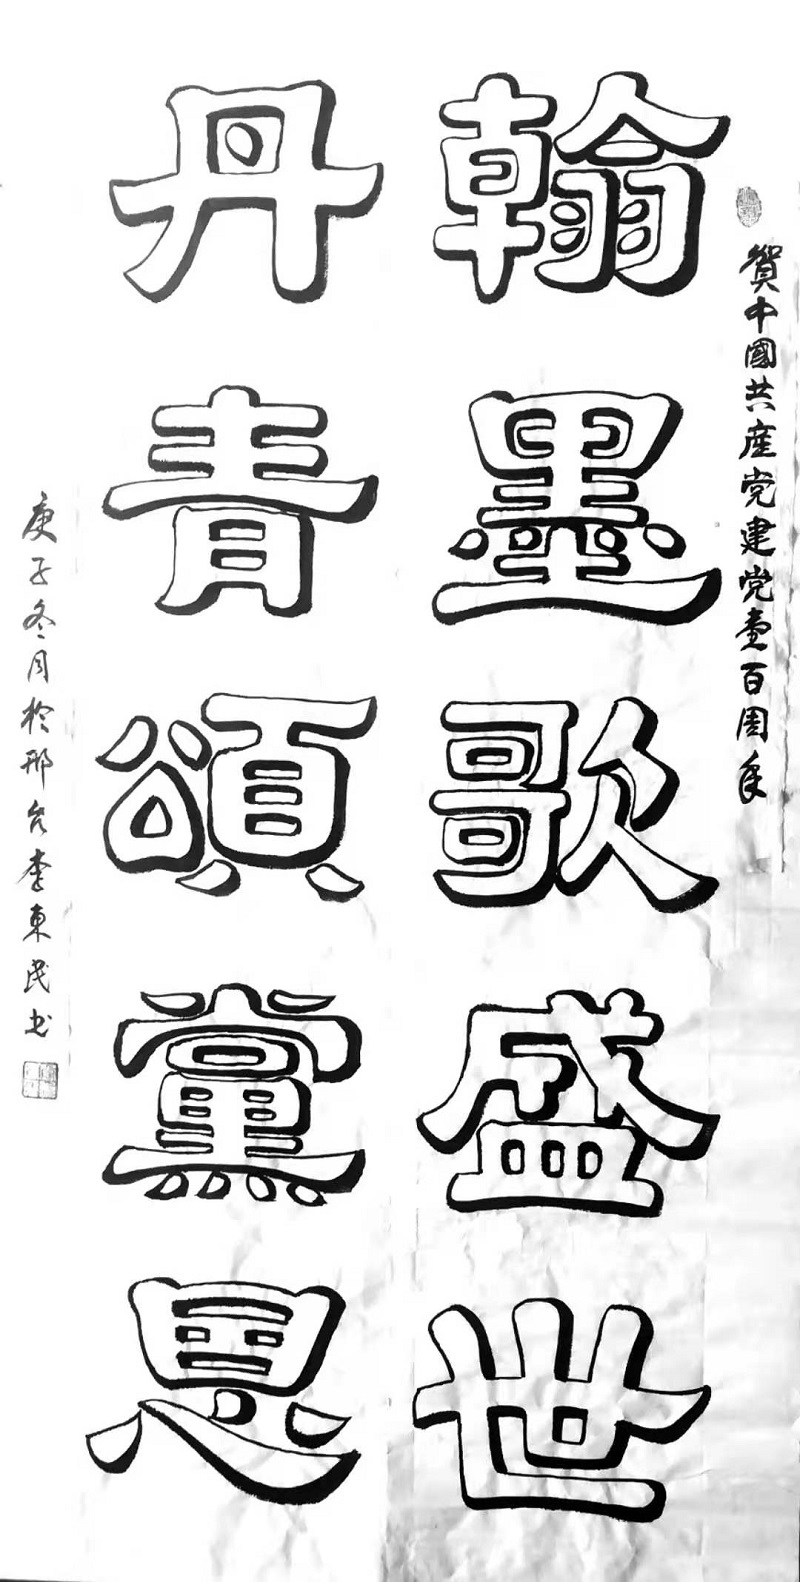 賀中國共産党建党壹百周年
翰墨歌盛世
丹青頌黨恩
庚子冬月於邢台李東民书